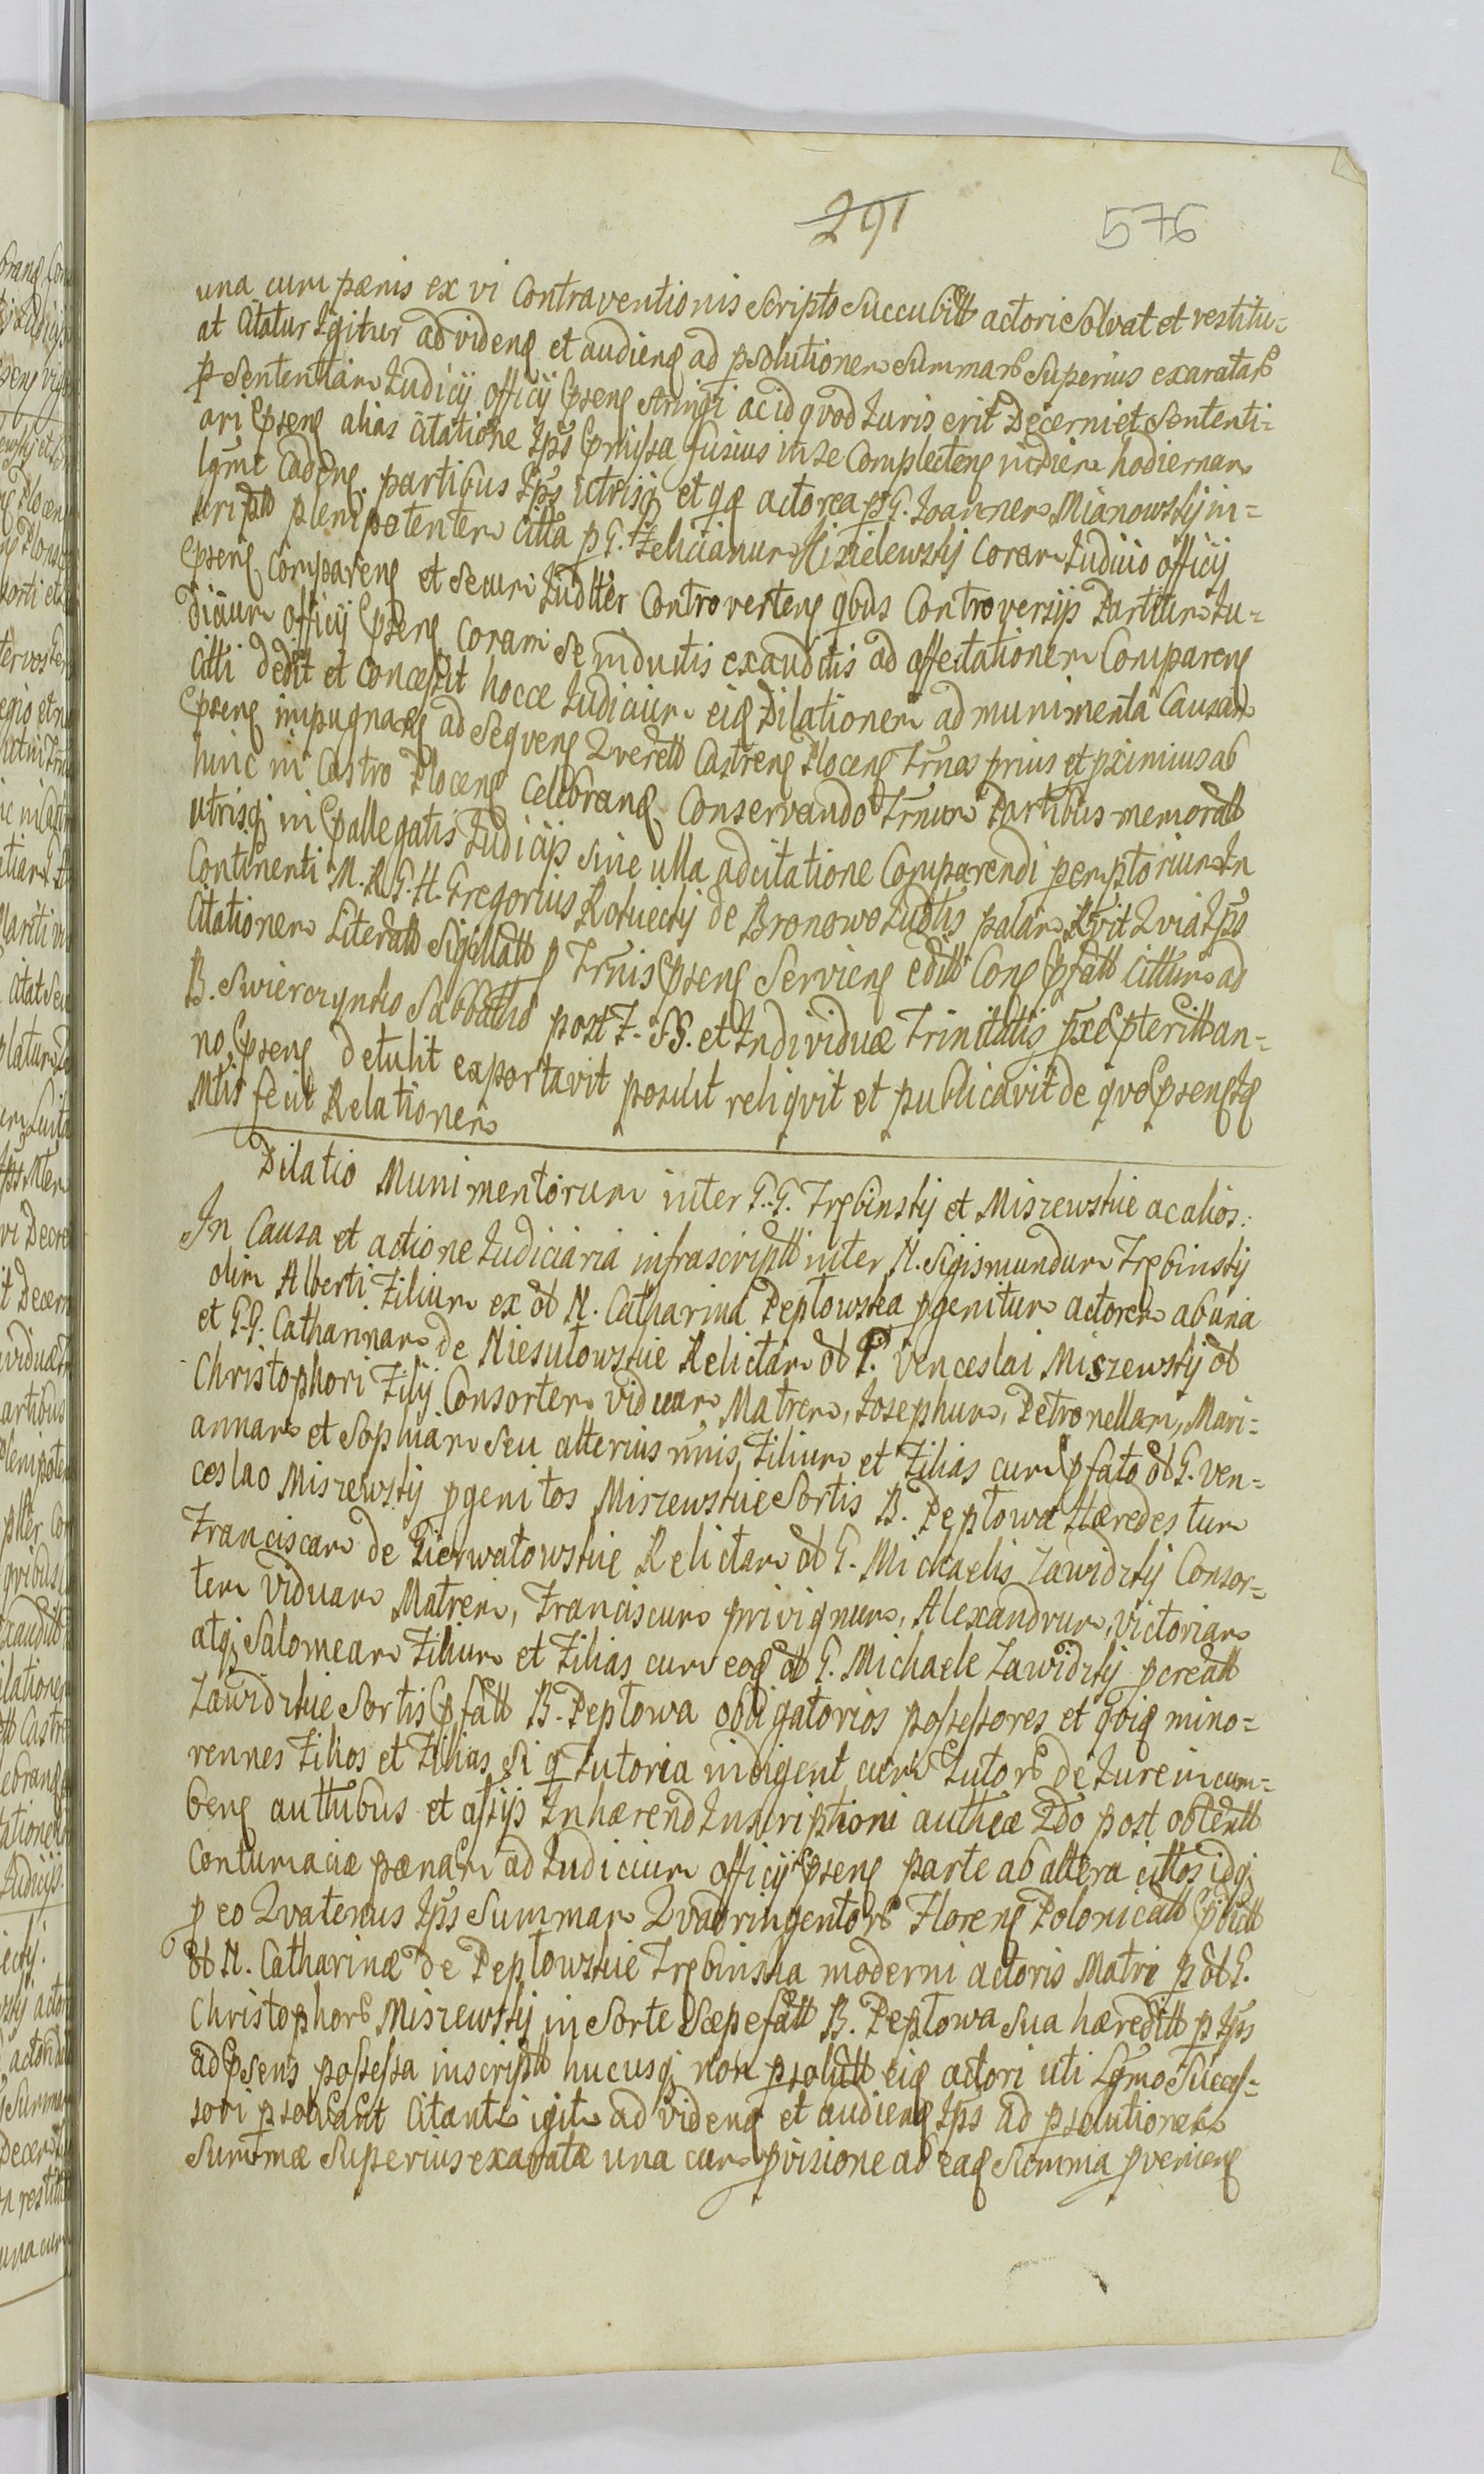 291 576
una cum pœnis ex vi Contraventionis Scripto Succubitt actori Solvat et restitu-
at Citatur Igitur ad videng et audieng ad psolutionem Summarb Superius exaratarb
p Sententiam Judicij officij pseng stringi ac id qvod Juris erit Decerni et Sententi-
ari pseng alias Citatione Ips pmissa fusius in se Complecteng in diem hodiernam
lgme Cadeng. partibus Ips utrisq et qq actorea p G. Joannem Mianowskij in-
script plenipotentem Citta p G. Felicianum Kisielewskij Coram Judicio officij
pseng Compareng et Secum Judlter Controverteng qbus Controversijs Partium Ju-
dicium officij pseng Coram Se inductis exauditis ad affectationem Compareng
Citti dedit et Concessit hocce Judicium eig Dilationem ad munimenta Causarb
pseng impugnareg ad Seqveng Qverett Castreng Ploceng Trnos prius et pximius ab
hinc in Castro Ploceng Celebrang Conservando Trnum Partibus memoratt
utrisq in pallegatis Judicijs Sine ulla adcitatione Comparendi pemptorium In
Continenti M. R. G. H. Gregorius Kotueckij de Bronowo Judtis palam Rvit Qvia Ips
Citationem Literatt Sigillatt p Trnis pseng Servieng editt Cong pfatt Cittum ad
B. Swierczynko Sabbatho post F. SS. et Individuæ Trinitatis pxe pteritt an-
no pseng detulit exportavit posuit reliqvit et publicavit de qvo pseng Jq
Mtis fecit Relationem
Dilatio Munimentorum inter G. G. Trębinskij et Miszewskie ac alios.
In Causa et actione Judiciaria infrascriptt inter N. Sigismundum Trębinskij
olim Alberti Filium ex ol N. Catharina Peptowska pgenitum actorem ab una
et G. G. Catharinam de Niesułowskie Relictam ol G. Venceslai Miszewskij ol
Christophori Filij Consortem viduam Matrem, Josephum, Petronellam, Mari-
annam et Sophiam Seu alterius nnis Filium et Filias cum pfato ol G. Ven-
ceslao Miszewskij pgenitos Miszewskie Sortis B. Peptowa Hæredes tum
Franciscam de Gierwatowskie Relictam ol G. Michaelis Zawidzkij Consor-
tem Viduam Matrem, Franciscum privignum, Alexandrum, Victoriam
atq Salomeam Filium et Filias cum eog ol G. Michaele Zawidzkij pcreatt
Zawidzkie Sortis pfatt B. Peptowa obligatorios possessores et qbig mino-
rennes Filios et Filias Si q Tutoria indigent cum Tutorb de Jure incum-
beng auttubus et assijs Inhærend Inscriptioni autheæ 2do post obtentt
Contumaciæ pœnam ad Judicium officij pseng parte ab altera cittos idq
p eo Qvatenus Ips Summam Qvadringentorb Floreng Polonicatt pdictt
ol N. Catharinæ de Peptowskie Trębinska moderni actoris Matri p ol G.
Christophorb Miszewskij in Sorte Sæpefatt B. Peptowa Sua hæreditt p Ips
ad psens possessa inscriptt hucusq non psolutt eig actori uti Lgmo Succes-
sori psolvant Citantr igitr ad videng et audieng Ips ad psolutionem
Summæ Superius exaratæ una cum pvisione ab eag Summa pvenieng